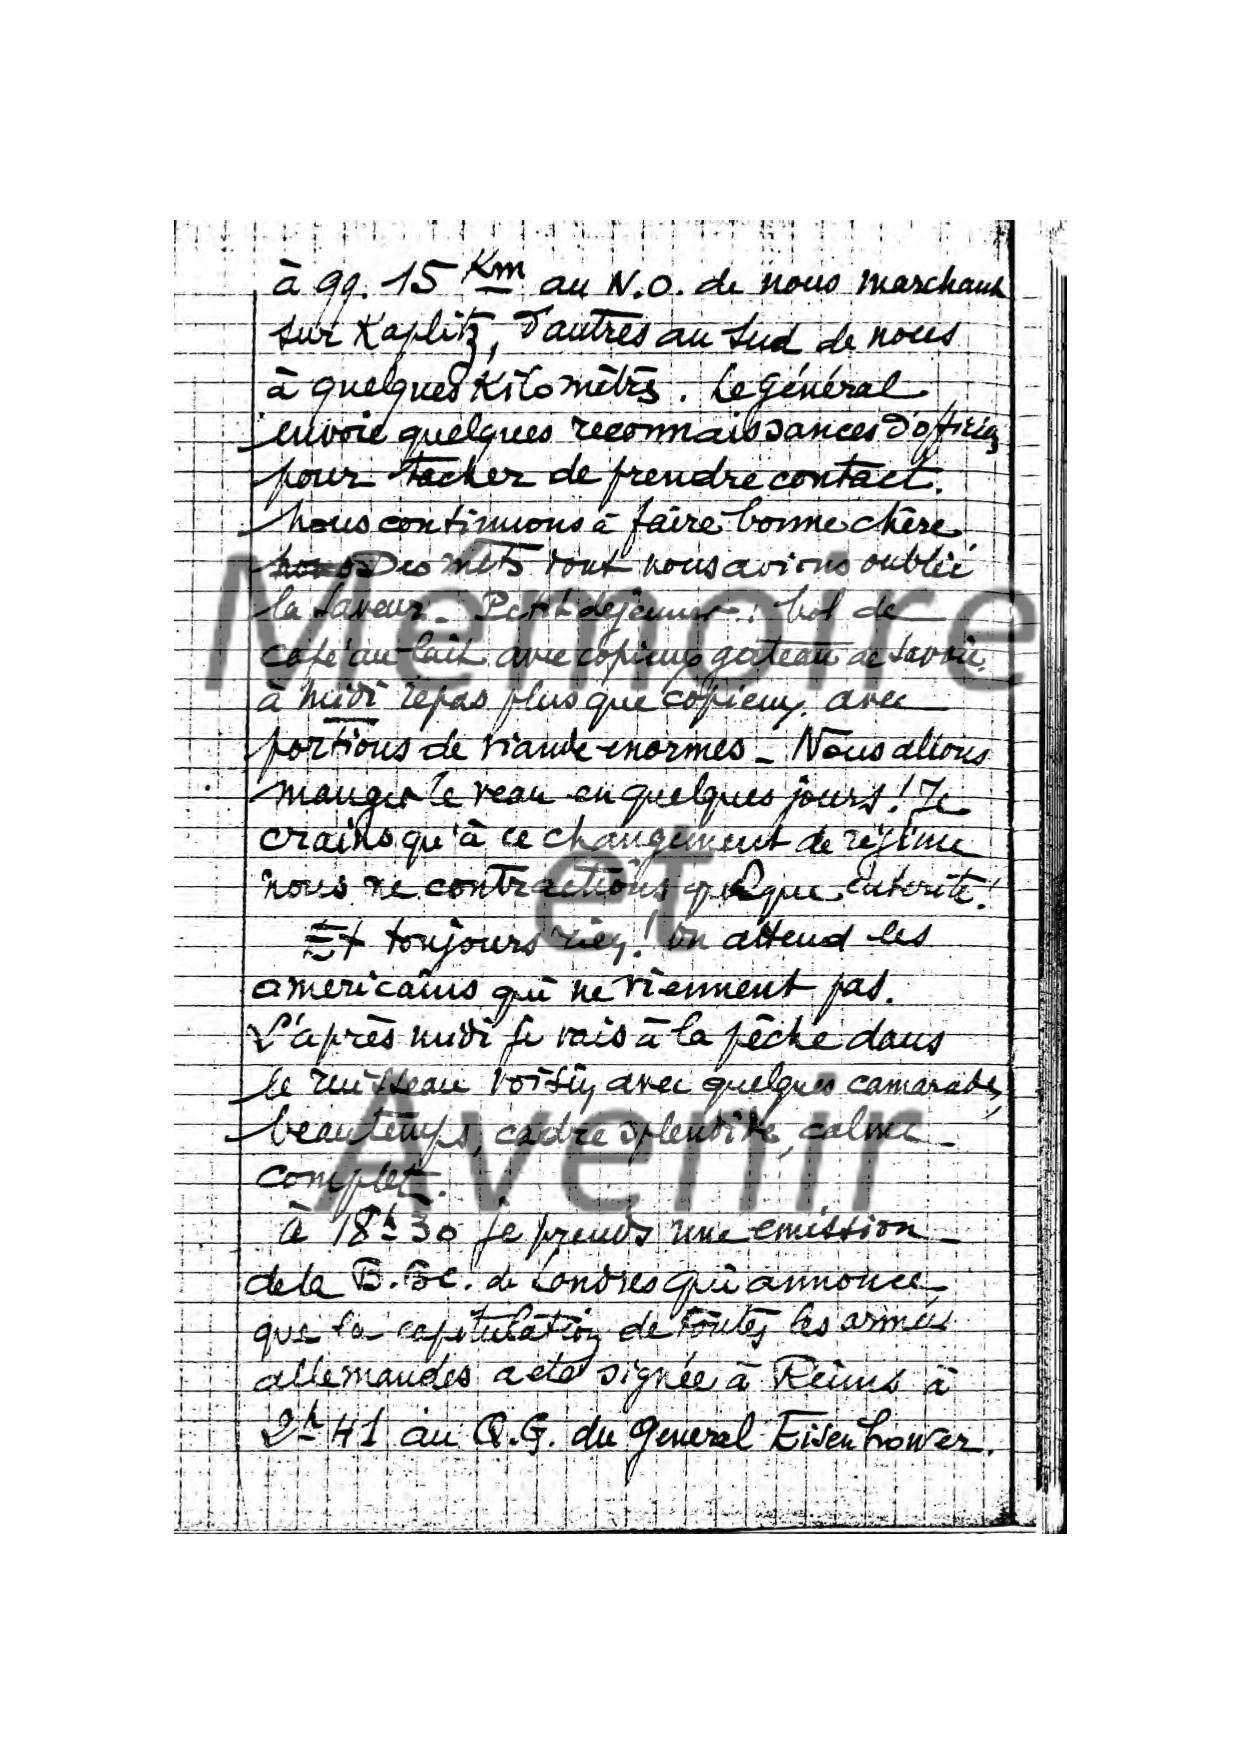 à qq. 15 Km au N.O. de nous marchant
sur Kaplitz, d'autres au Sud de nous
à quelques Kilomètres. Le Général
envoie quelques reconnaissances d'officiers
pour tacher de prendre contact.
Nous continuons à faire bonne chère
Des mets dont nous avions oublié
la saveur. Petit déjeuner : bol de
café au lait avec copieux gateau de Savoie
à midi repas plus que copieux avec
portions de viande enormes - Nous allons
manger le veau en quelques jours ! Je
crains qu'à ce changement de régime
nous ne contractions quelque entérite !
Et toujours rien ! On attend les
americains qui ne viennent pas.
L'après midi je vais à la pêche dans
le ruisseau voisin avec quelques camarades,
beau temps, cadre splendide, calme
complet.
à 18h30 je prends une emission
de la B.B.C. de Londres qui annonce
que la capitulation de toutes les armées
allemandes a eté signée à Reims à
2h41 au Q.G. du General Eisenhower.
Mémoire
et
Avenir